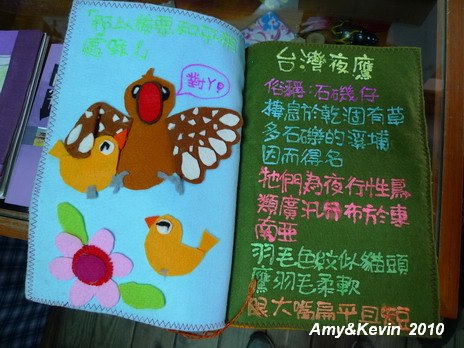 對丫!
台灣夜鷹
俗稱:石磯仔
棲息於乾涸有草
多石礫的溪埔
因而得名
牠們為夜行性鳥
類廣汎分布於東
南亞
羽毛色紋似貓頭
鷹羽毛柔軟
眼大嘴扁平且短
Amy&Kevin 2010